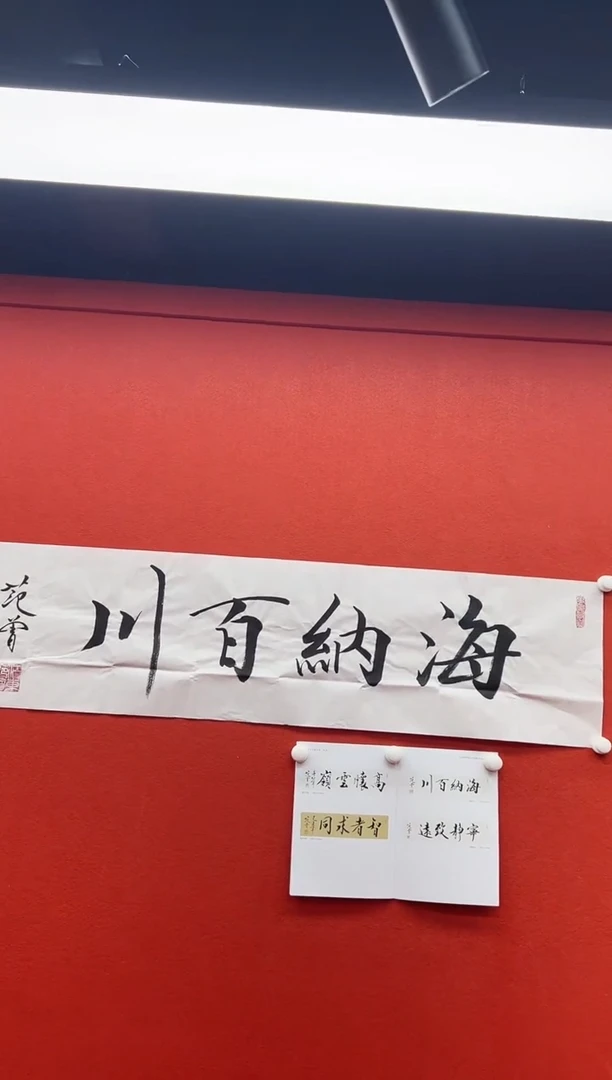 海納百川
范曾
海納百川
寧靜致遠
高懷雲嶺
智者求同